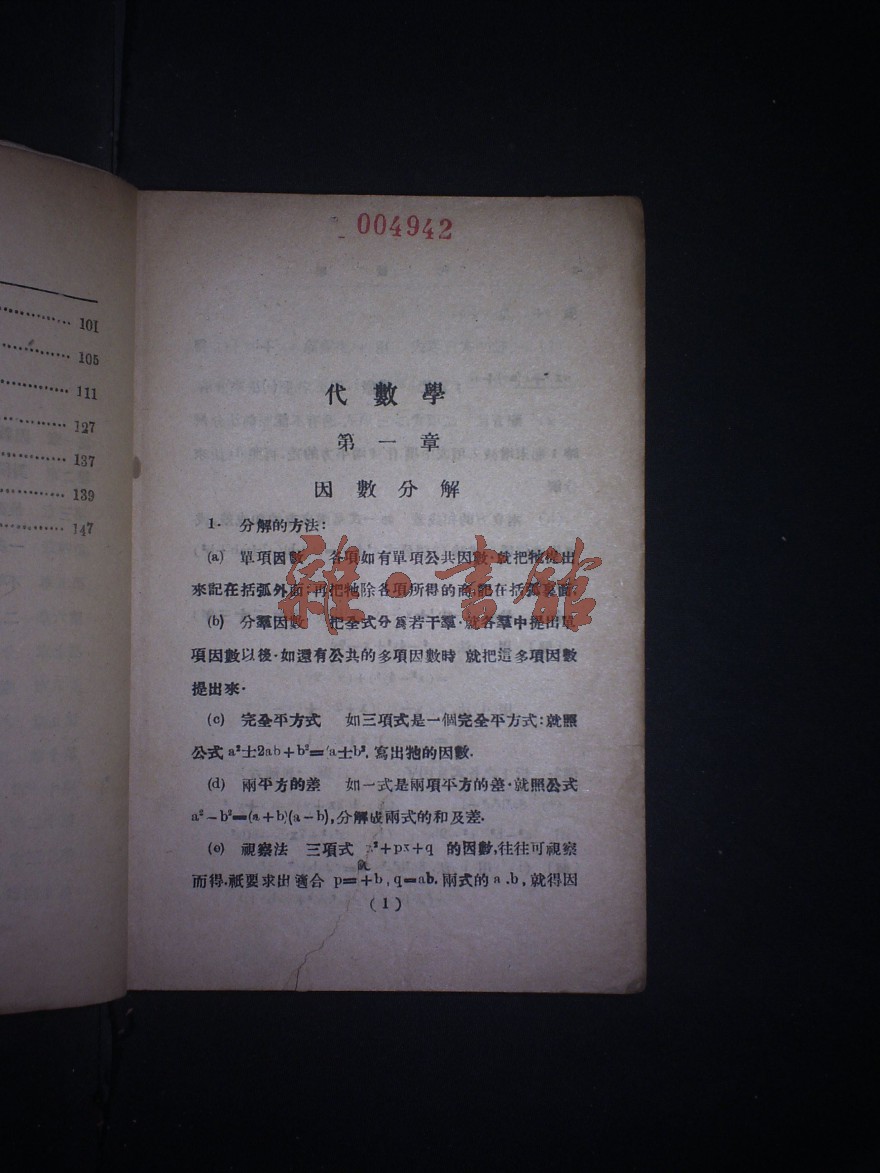 101
105
111
127
137
139
147
004942
代數學
第一章
因數分解
1. 分解的方法：
(a) 單項因數 各項如有單項公共因數，就把牠從出
來記在括弧外面；再把牠除各項所得的商，記在括弧裏面；
(b) 分羣因數 把全式分爲若干羣，就各羣中提出單
項因數以後，如還有公共的多項因數時 就把這多項因數
提出來．
(c) 完全平方式 如三項式是一個完全平方式：就照
公式 a²±2ab+b²=(a±b², 寫出牠的因數．
(d) 兩平方的差 如一式是兩項平方的差，就照公式
a²−b²=(a+b)(a−b), 分解成兩式的和及差．
(e) 視察法 三項式 x²+px+q 的因數，往往可視察
而得．祇要求出適合 p=a+b, q=ab. 兩式的 a.b, 就得因
(1)
雜·書館